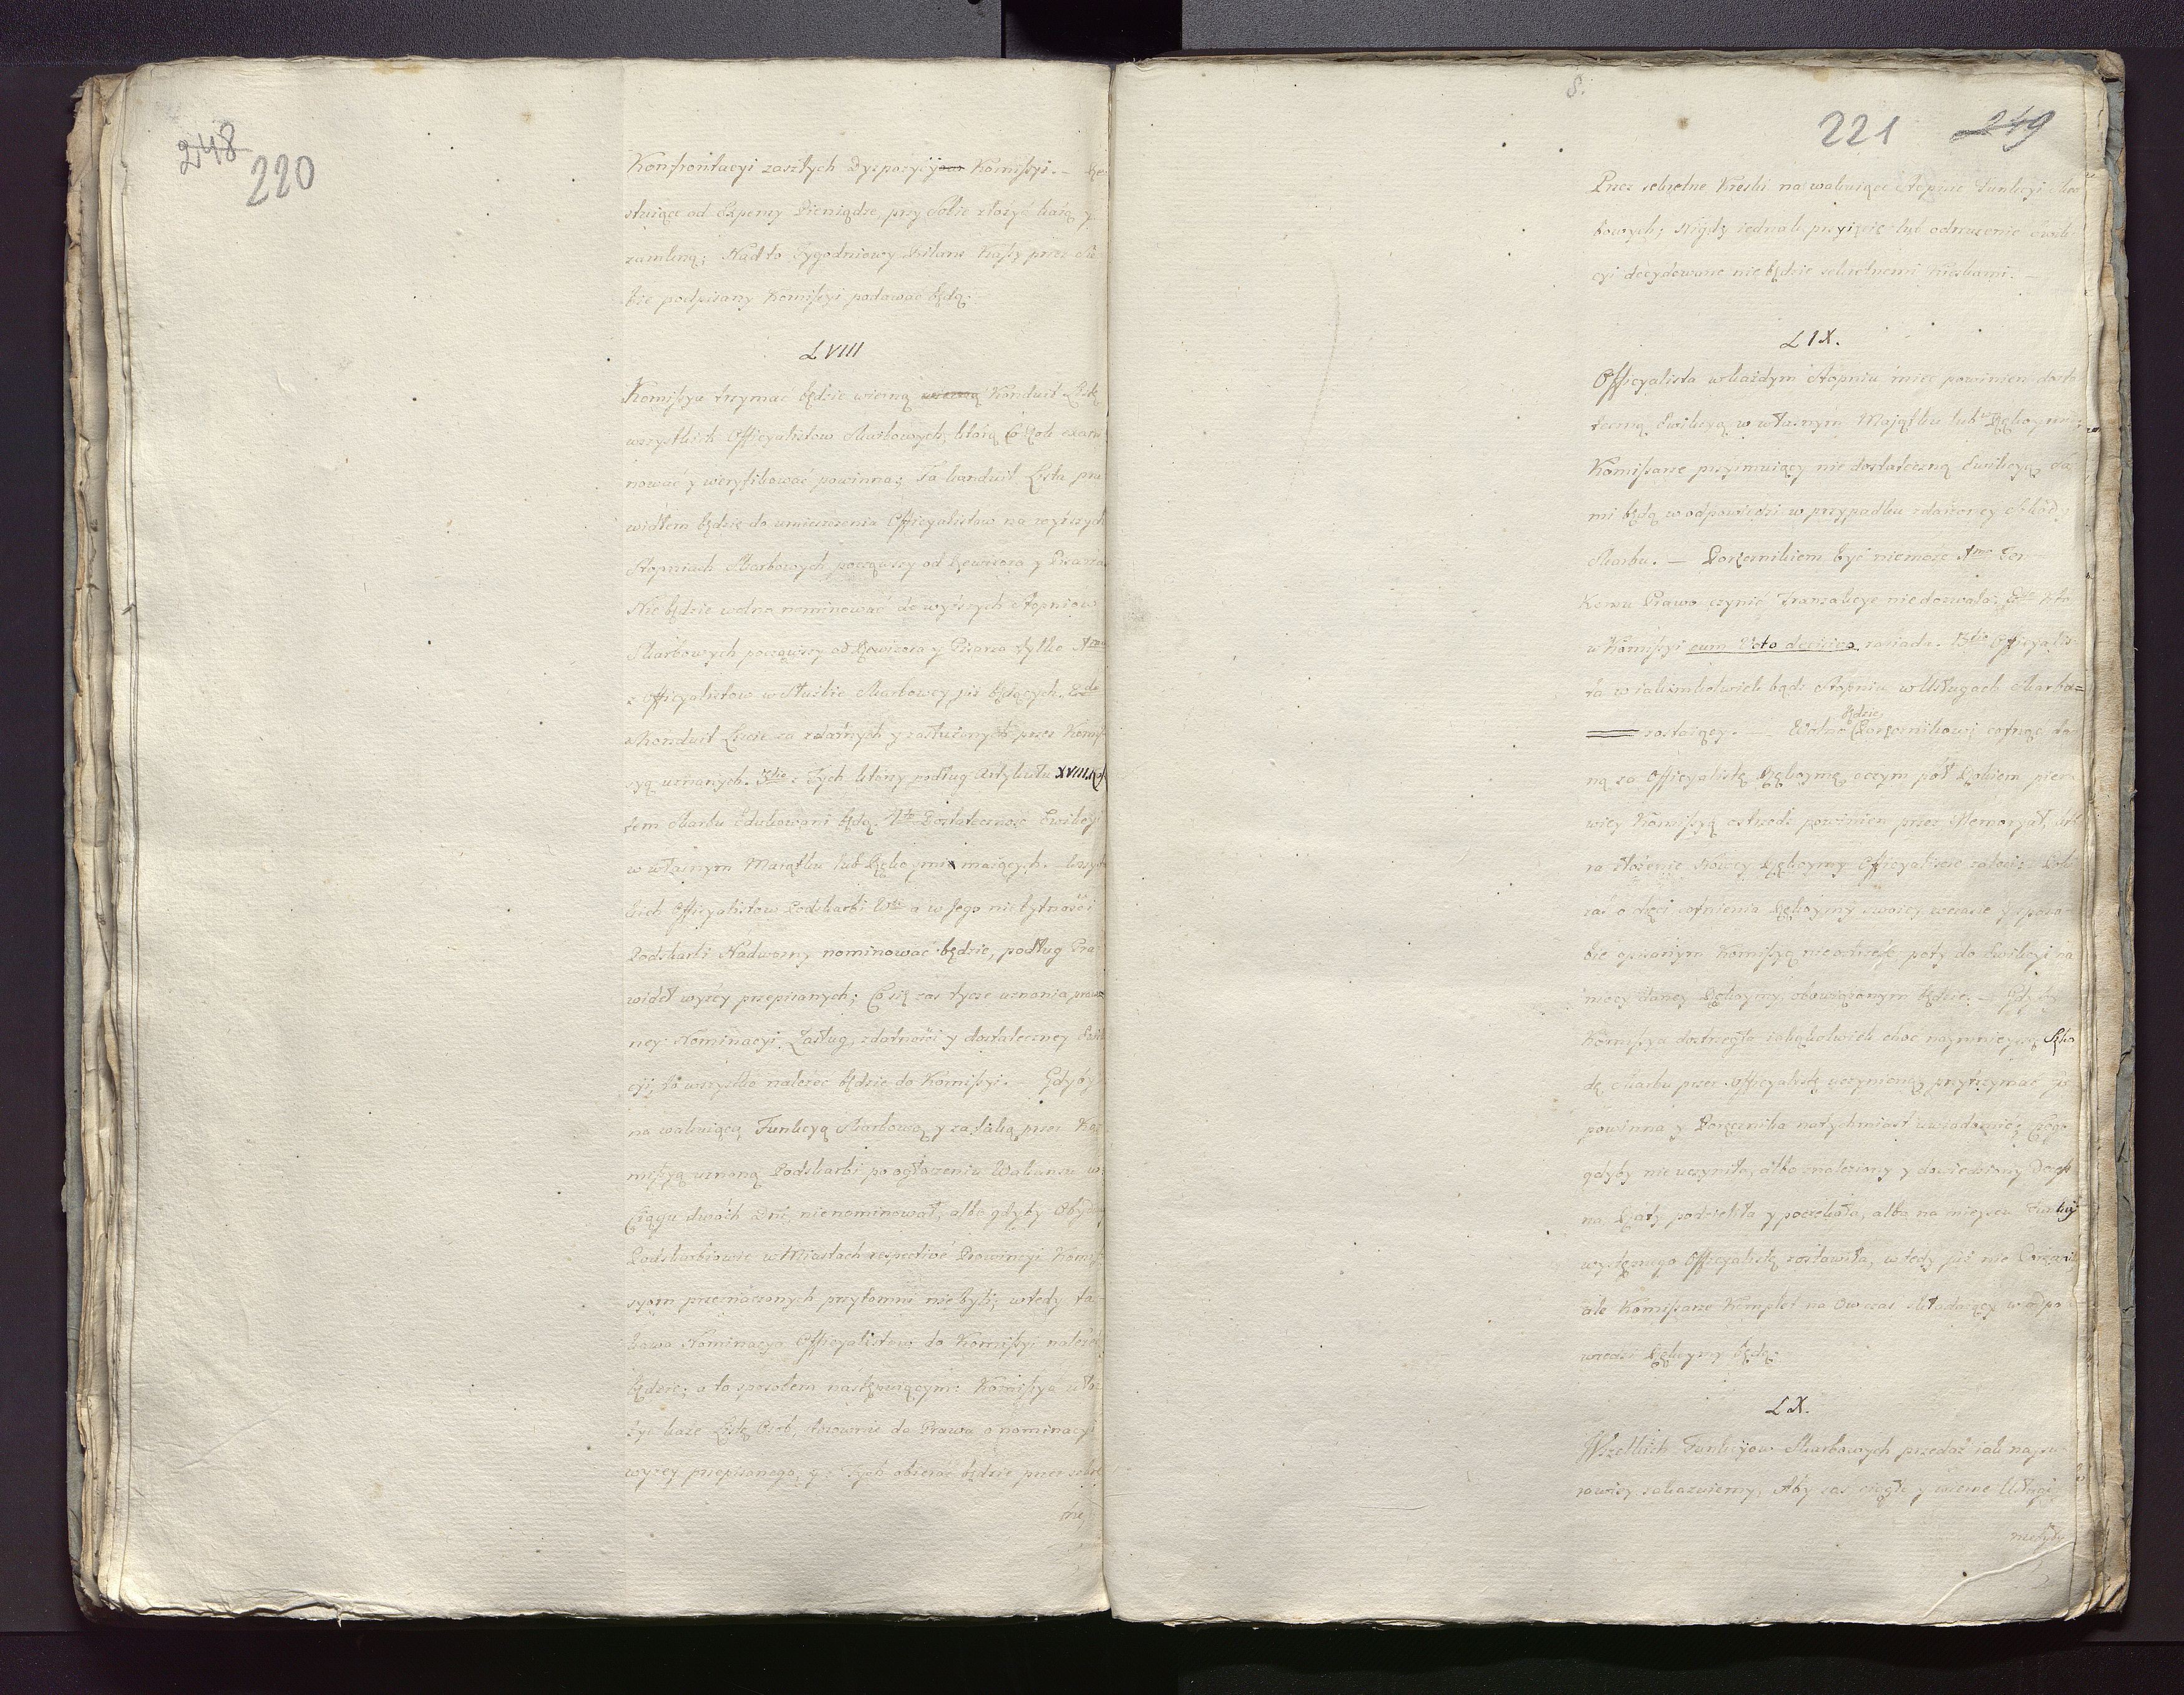 248
220
Konfrontacyi zaszłych Dyspozycyi Komißyi. —
stuiące od Expensy Pieniądze, przy Sobie złożyć każą y
zamkną; Nadto Tygodniowy Bilans Kaßy przez
bie podpisany Komißyi podawać będą.
LVIII
Komißya trzymać będzie wierną Konduit Listę
wszystkich Officyalistow Skarbowych, którą Co Rok exami
nować y weryfikować powinna; Ta konduit Lista pra
widłem będzie do umieszczenia Officyalistow na wyższych
Stopniach Skarbowych począwszy od Rewizora y Pisarza
Nie będzie wolno nominować do wyższych Stopniow
Skarbowych począwszy od Rewizora y Pisarza tylko 1mo
z Officyalistow w Służbie Skarbowey już będących. 2do
w Konduit Liscie za zdatnych y zasłużonych przez Komiß
syą uznanych. 3tio: Tych którzy podług Artykułu XVIII
tem Skarbu Edukowani będą. 4to Dostateczność Ewikcyi
w własnym Maiątku lub Rękoymią maiących. Wszyst
kich Officyalistow Podskarbi Wki a w Jego niebytności
Podskarbi Nadworny nominować będzie, podług Pra
wideł wyżey przepisanych; Co się zaś tycze uznania
ney Nominacyi, Zasług, zdatności y dostateczney Ewik
cyi, to wszystko należeć będzie do Komißyi. — Gdyby
na wakuiącą Funkcyą Skarbową y za taką przez Ko
mißyą uznaną Podskarbi po ogłoszeniu Wakansu w
Ciągu dwóch Dni, nie nominował, albo gdyby Obydwa
Podskarbiowie w Miastach respectivé Prowincyi Komiß
syom przeznaczonych przytomni nie byli; wtedy ta
kowa Nominacya Officyalistow do Komißyi należeć
będzie; a to sposobem następuiącym: Komißya uło
żyć każe Listę Osob, stosownie do Prawa o nominacyi
wyżey przepisanego, y z Tych obierać będzie przez sekre
tne
8.
221 249
Przez sekretne Kreski na wakuiące Stopnie Funkcyi Skar
bowych; Nigdy iednak przyięcie lub odrzucenie Ewik
cyi decydowane nie będzie sekretnemi Kreskami. —
LIX.
Officyalista w każdym Stopniu mieć powinien dosta
teczną Ewikcyą w własnym Maiątku lub w Rękoymi;
Komißarze przyimuiący nie dostateczną Ewikcyą, sa
mi będą w odpowiedzi w przypadku zdarzoney Szkody
Skarbu. — Poręcznikiem być niemoże 1mo Ten
Komu Prawo czynić Tranzakcye niedozwala; 2do kto
w Komißyi cum Voto decisivo zasiada. 3tio Officyalis
ta w iakimkolwiek bądź Stopniu w Usługach Skarbo=
zostaiący. — Wolno będzie Poręcznikowi cofnąć da
ną za Officyalistę Rękoymę, o czym pół Rokiem pier
wiey Komißyą ostrzedz powinien przez Memoryał,
na złożenie Nowey Rękoymy Officyaliście
zaś o chęci cofnienia Rękoymy swoiey wczasie y sposo
bie opisanym Komißyą nieostrzeże, poty do Ewikcyi na
mocy daney Rękoymy, obowiązanym będzie. — Gdyby
Komißya dostrzegła iakąkolwiek choc naymnieyszą Szko
dę Skarbu przez Officyalistę uczynioną, przytrzymać go
powinna y Poręcznika natychmiast uwiadomić; Czego
gdyby nie uczyniła, albo znaleziony y dowiedziony
na Raty podzieliła y poczekała, albo na mieyscu Funkcyi
występnego Officyalistę zostawiła, wtedy już nie Poręcznik
ale Komißarze Komplet na Owczas składaiący w odpo
wiedzi Rękoymy będą.
LX.
Wszelkich Funkcyow Skarbowych przedaż iak naysu
rowiey zakazuiemy, Aby zaś ciągłe y wierne Usługi